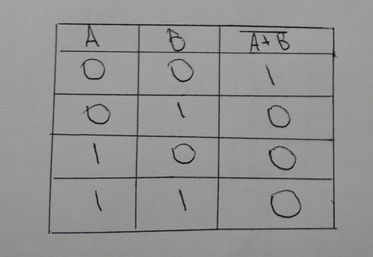 A B A̅+̅B̅
0 0 1
0 1 0
1 0 0
1 1 0